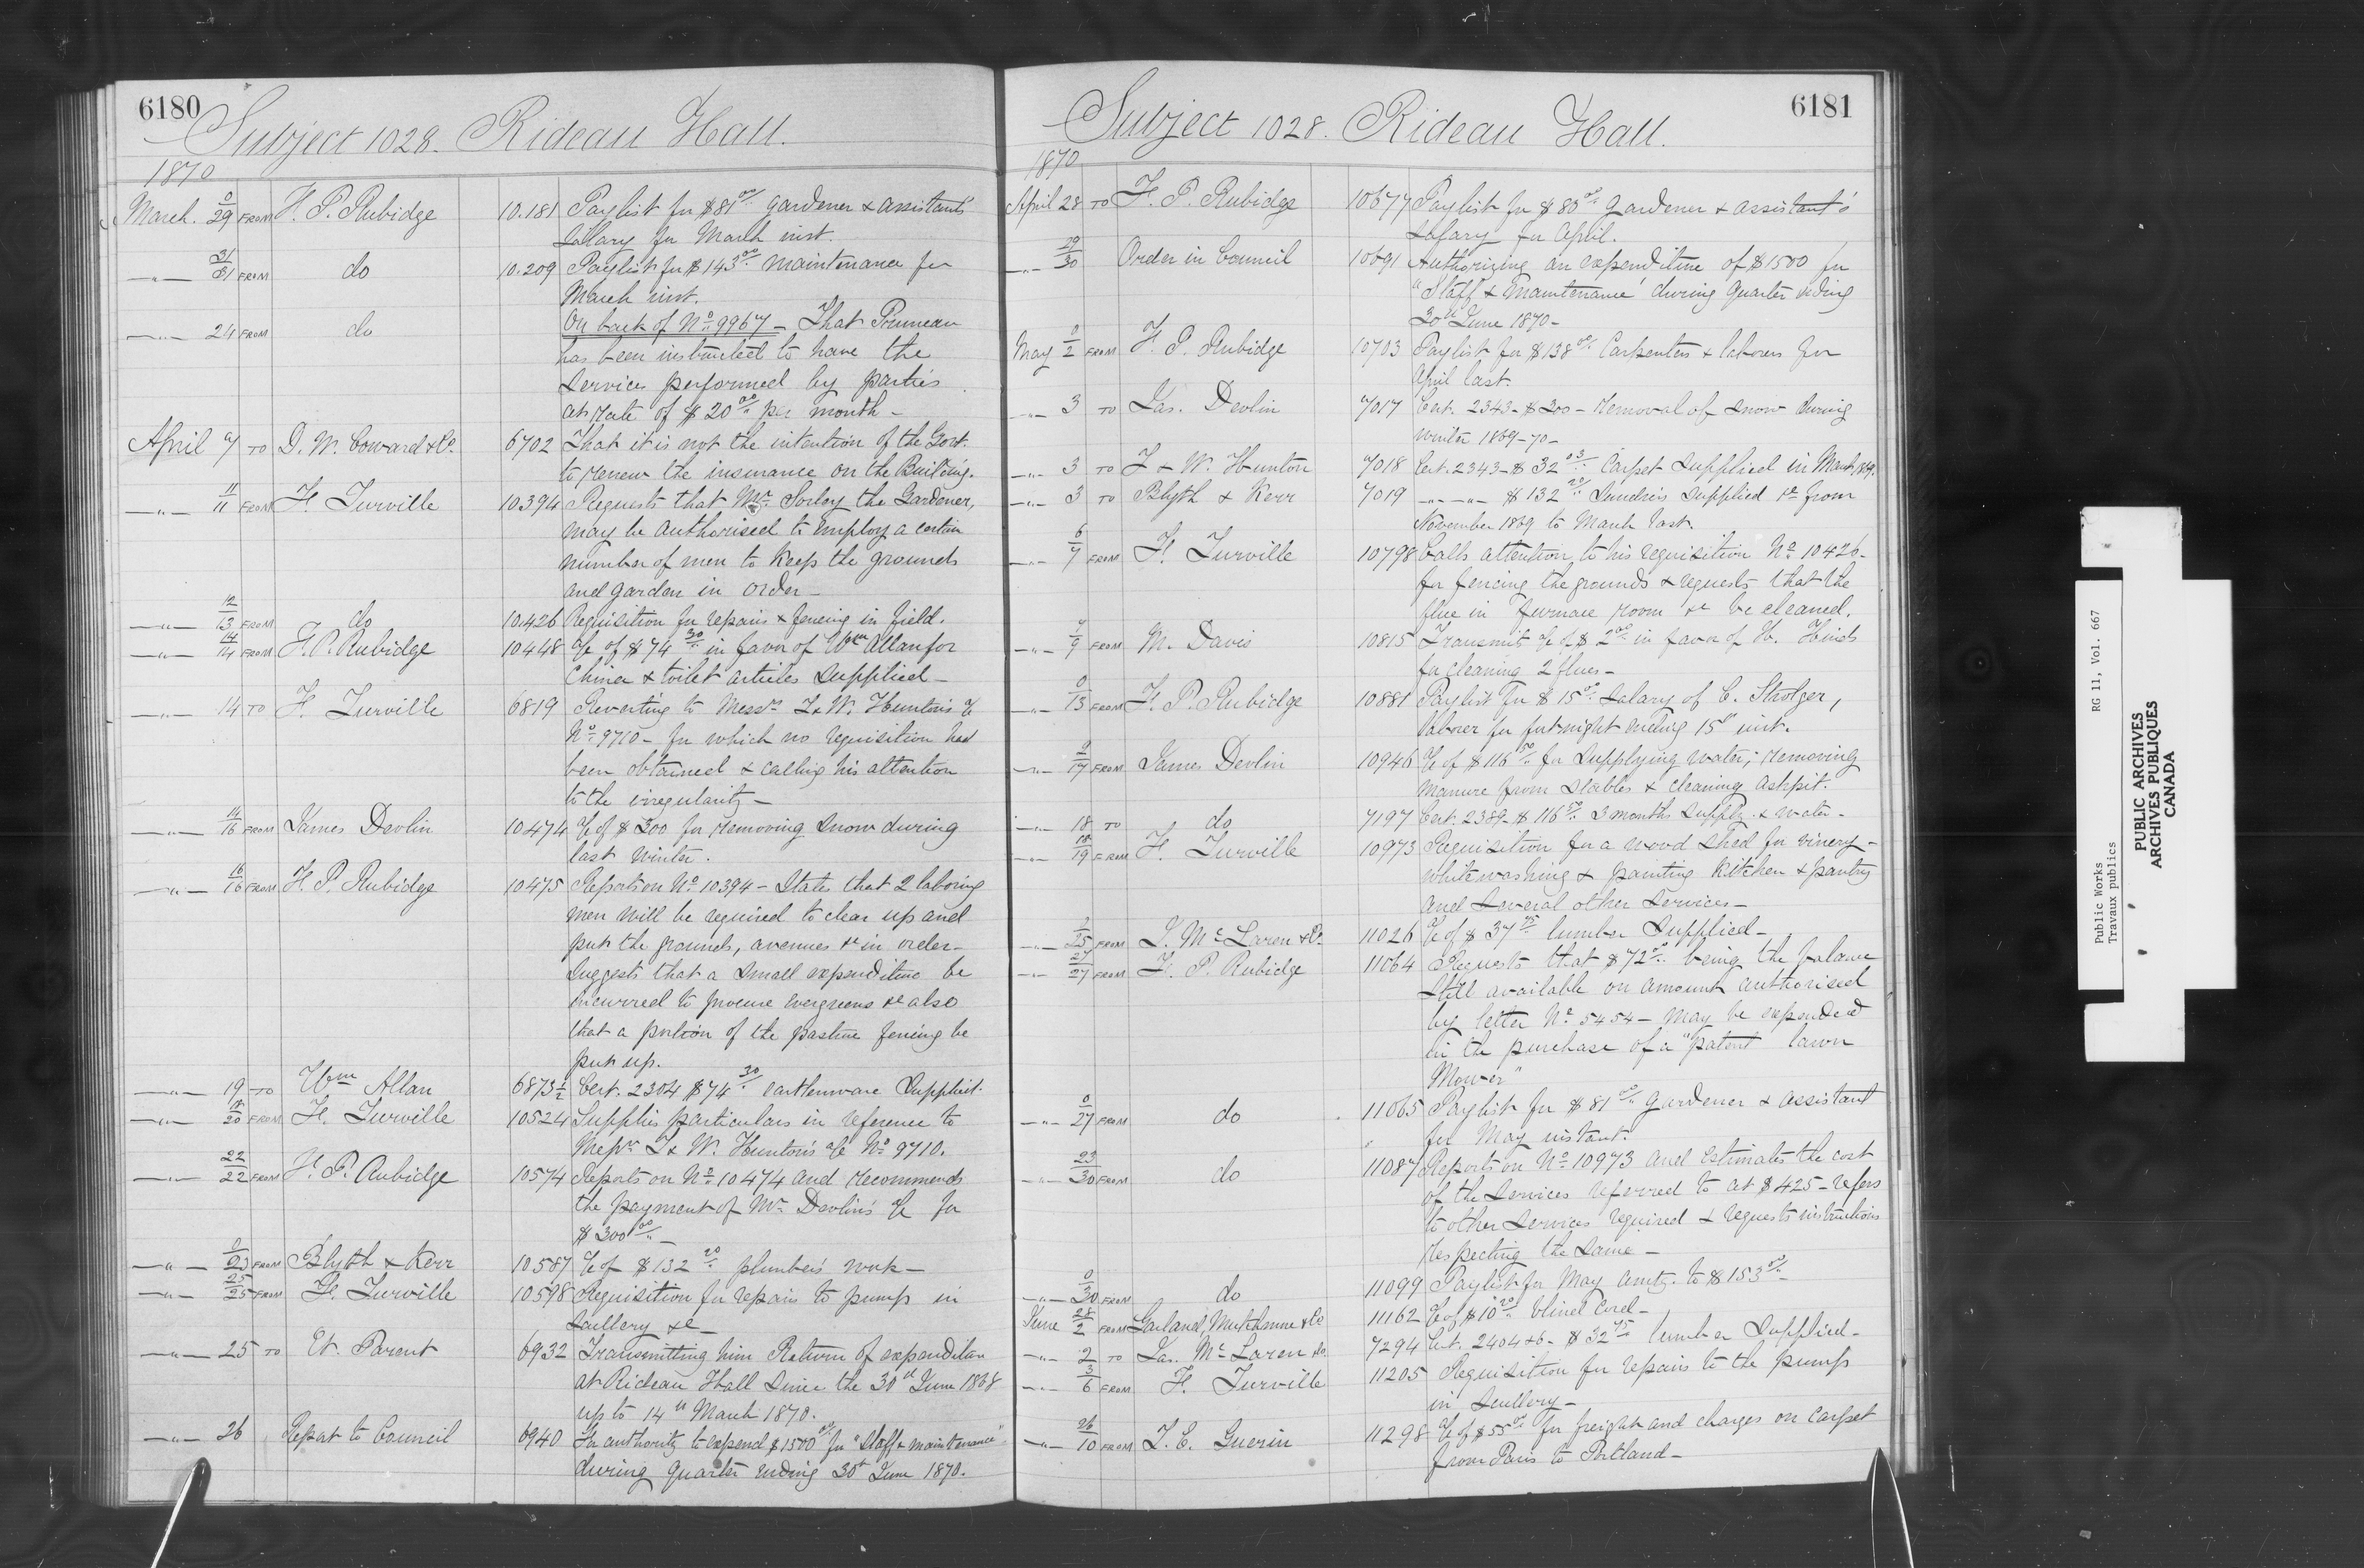 6180
Subject 1028. Rideau Hall.
1870
March. 0/29 FROM F. P. Rubidge 10.181 Paylist for $81 00/ gardener & assistants
Salary for March inst.
—"— 31/31 FROM do 10.209 Paylist for $143 00/ maintenance for
March inst.
—"— 24 FROM do On back of No 9967 — That Pruneau
has been instructed to have the
services performed by parties
at rate of $20 00/ per month —
April 7 TO D. W. Coward & Co. 6702 That it is not the intention of the Govt.
to renew the insurance on the Building.
—"— 11/11 FROM F. Turville 10.394 Requests that Mr. Sorley the Gardener,
may be authorised to employ a certain
number of men to keep the grounds
and garden in order —
—"— 12/13 FROM do 10.426 Requisition for repairs & fencing in field.
—"— 14/14 FROM F. P. Rubidge 10448 a/c of $74 30/ in favor of Wm Allan for
China & toilet articles supplied —
—"— 14 TO F. Turville 6819 Reverting to Messrs J. & W. Hunton's a/c
No 9710 — for which no requisition had
been obtained & calling his attention
to the irregularity —
—"— 14/16 FROM James Devlin 10.474 a/c of $300 for removing snow during
last winter.
—"— 16/16 FROM F. P. Rubidge 10475 Reports on No 10394 — States that 2 laboring
men will be required to clear up and
put the grounds, avenues &c in order —
Suggests that a small expenditure be
incurred to procure evergreens &c also
that a portion of the pasture fencing be
put up.
—"— 19 TO Wm Allan 6873½ Cert. 2304 $74 30/ earthenware supplied.
—"— /20 FROM F. Turville 10524 Supplies particulars in reference to
Messrs J. & W. Hunton's a/c No 9710.
—"— 22/22 FROM F. P. Rubidge 10574 Reports on No 10474 and recommends
the payment of Mr. Devlin's a/c for
$300 00/ —
—"— 0/23 FROM Blyth & Kerr 10587 a/c of $132 20/ plumbers work —
—"— 25/25 FROM F. Turville 10598 Requisition for repairs to pump in
Scullery &c —
—"— 25 TO Et. Parent 6932 Transmitting him Return of expenditure
at Rideau Hall since the 30th June 1868
up to 14th March 1870.
—"— 26 Report to Council 6940 For authority to expend $1500 00/ for "Staff & maintenance"
during quarter ending 30th June 1870.
6181
Subject 1028. Rideau Hall.
1870
April 28 TO F. P. Rubidge 10677 Paylist for $80 00/ gardener & assistant's
Salary for April.
—"— 29/30 Order in Council 10691 Authorizing an expenditure of $1500 for
"Staff & Maintenance" during quarter ending
30th June 1870 —
May 0/2 FROM F. P. Rubidge 10703 Paylist for $138 00/ Carpenters & laborers for
April last.
—"— 3 TO Jas. Devlin 7017 Cert. 2343 — $300 — removal of snow during
winter 1869-70 —
—"— 3 TO J & W. Hunton 7018 Cert. 2343 — $32 03/ Carpet supplied in March, 1869.
—"— 3 TO Blyth & Kerr 7019 —"— —"— $132 20/ Sundries supplied &c from
November 1869 to March last.
—"— 6/7 FROM F. Turville 10798 Calls attention to his requisition No 10426 —
for fencing the grounds & requests that the
flue in furnace room &c be cleaned.
—"— 7/9 FROM M. Davis 10815 Transmits a/c of $2 00/ in favor of H. Hinds
for cleaning 2 flues —
—"— 0/13 FROM F. P. Rubidge 10881 Paylist for $15 00/ Salary of C. Stolger,
laborer for fortnight ending 15th inst.
—"— 0/17 FROM James Devlin 10946 a/c of $116 50/ for supplying water, removing
manure from stables & cleaning ashpit.
—"— 18 TO do 7197 Cert. 2389 — $116 50/ 3 months supply & water —
—"— 18/19 FROM F. Turville 10973 Requisition for a wood shed for vinery —
whitewashing & painting kitchen & pantry
and several other services —
—"— /25 FROM J. McLaren & Co. 11026 a/c of $37 75/ lumber supplied —
—"— 27/27 FROM F. P. Rubidge 11064 Requests that $72 00/ being the balance
still available on amount authorised
by letter No 5454 — may be expended
in the purchase of a "patent lawn
Mower"
—"— 0/27 FROM do 11065 Paylist for $81 00/ gardener & assistant
for May instant.
—"— 23/30 FROM do 11087 Reports on No 10973 and estimates the cost
of the services referred to at $425 — refers
to other services required & requests instructions
respecting the same —
—"— 0/30 FROM do 11099 Paylist for May amtg. to $153 00/ —
June 28/2 FROM Garland, Mutchmor & Co 11162 a/c of $10 20/ blind cord —
—"— 2 TO Jas. McLaren & Co 7294 Cert. 2404 & 6 — $32 75/ lumber supplied —
—"— 3/6 FROM F. Turville 11205 Requisition for repairs to the pump
in Scullery —
—"— 26/10 FROM L. E. Guerin 11298 a/c of $55 00/ for freight and charges on carpet
from Paris to Portland —
Public Works
Travaux publics
RG 11, Vol. 667
PUBLIC ARCHIVES
ARCHIVES PUBLIQUES
CANADA